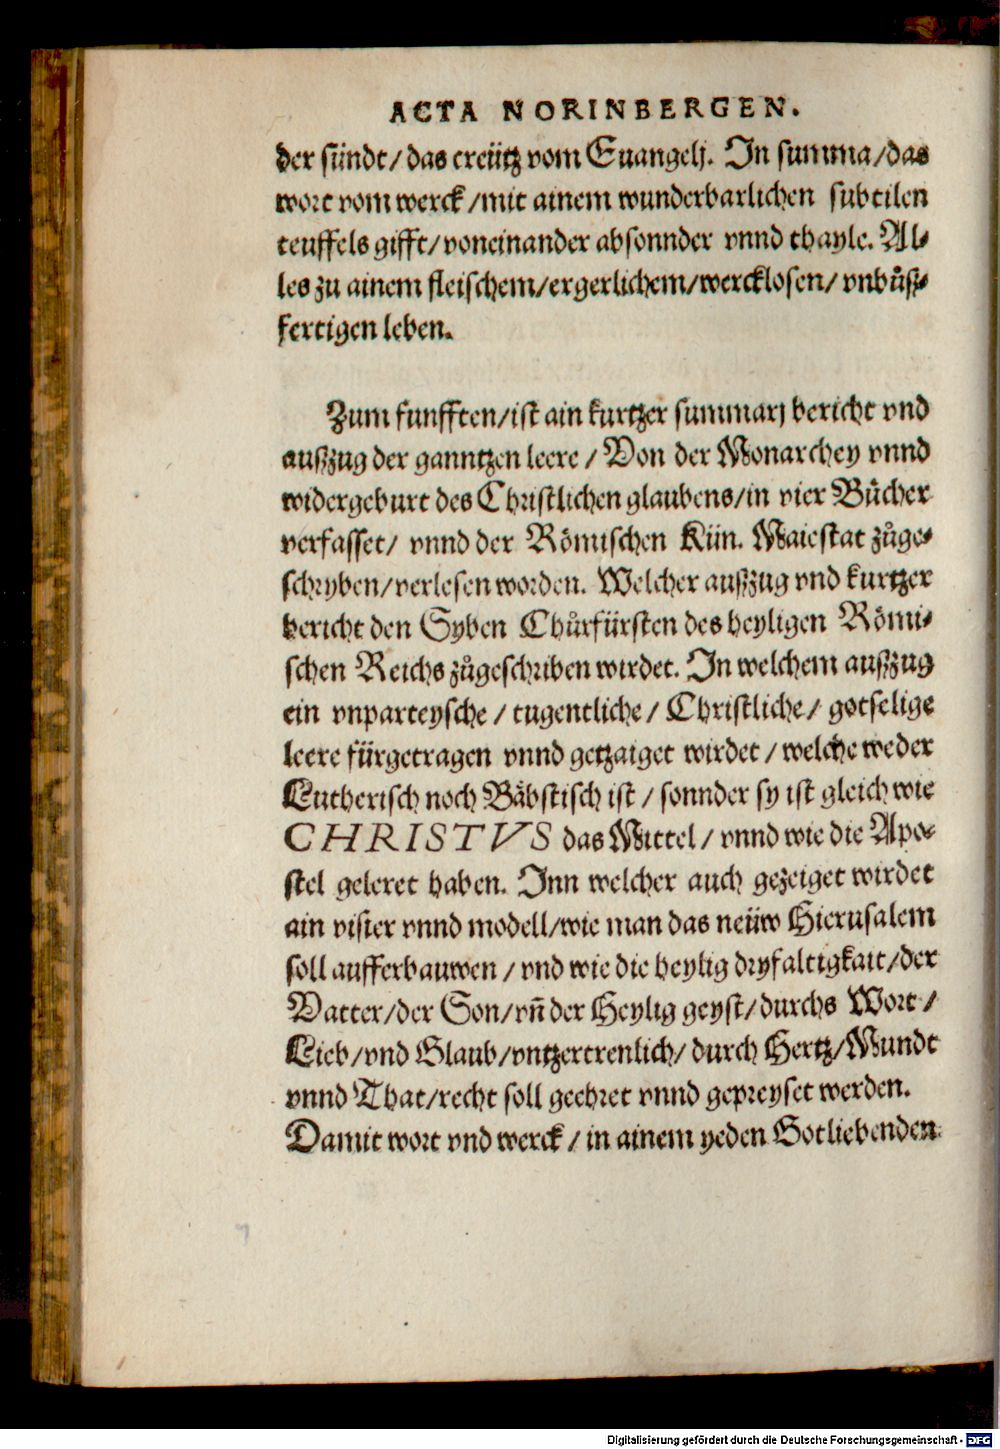 ACTA NORINBERGEN.
der sündt/ das creütz vom Euangelj. In summa/das
wort vom werck/mit ainem wunderbarlichen subtilen
teuffels gifft/ voneinander absonnder vnnd thayle. Al⸗
les zu ainem fleischem/ergerlichem/wercklosen/ vnbůsz⸗
fertigen leben.
Zum funfften/ist ain kurtzer summarj bericht vnd
auszzug der ganntzen leere / Von der Monarchey vnnd
widergeburt des Christlichen glaubens/in vier Bůcher
verfasset/ vnnd der Römischen Kün. Maiestat zůge⸗
schryben/verlesen worden. Welcher auszzug vnd kurtzer
bericht den Syben Chůrfürsten des heyligen Römi⸗
schen Reichs zůgeschriben wirdet. In welchem auszzug
ein vnparteysche / tugentliche / Christliche / gotselige
leere fürgetragen vnnd getzaiget wirdet / welche weder
Lutherisch noch Bäbstisch ist / sonnder sy ist gleich wie
CHRISTVS das Mittel / vnnd wie die Apo⸗
stel geleret haben. Inn welcher auch gezeiget wirdet
ain visier vnnd modell/wie man das neüw Hierusalem
soll aufferbauwen / vnd wie die heylig dryfaltigkait/der
Vatter/der Son/vn̄ der Heylig geyst/durchs Wort /
Lieb/vnd Glaub/vntzertrenlich/ durch Hertz/Mundt
vnnd That/recht soll geehret vnnd gepreyset werden.
Damit wort vnd werck / in ainem yeden Gotliebenden
Digitalisierung gefördert durch die Deutsche Forschungsgemeinschaft - DFG